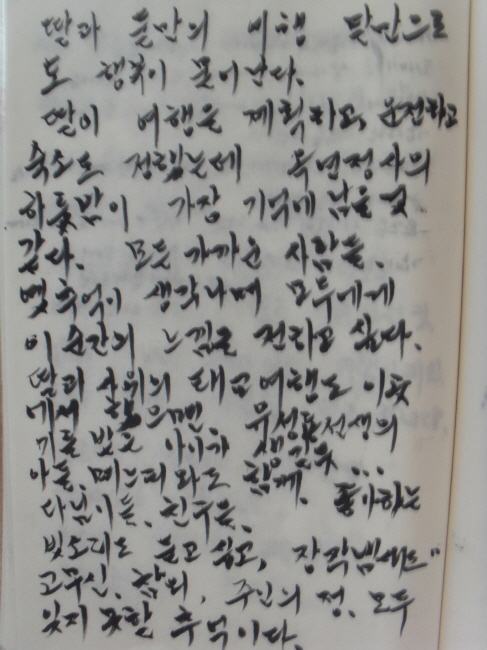 딸과 둘만의 여행 말만으로
도 행복이 묻어난다.
딸이 여행을 계획하고, 운전하고
숙소도 정했는데 옥연정사의
하룻밤이 가장 기억에 남을 것.
같다. 모든 가까운 사람들.
몇 추억이 생각나며 모두에게
이 순간의 느낌을 전하고 싶다.
딸과 사위의 태교여행도 이곳
에서 했으면 유성룡선생의
기를 받은 아이가 생길듯 ...
아들. 며느리와도 함께. 좋아하는
다님이들. 친구들.
빗소리도 듣고 싶고, 장작냄새도
고무신. 참외, 주인의 정. 모두
잊지 못할 추억이다.